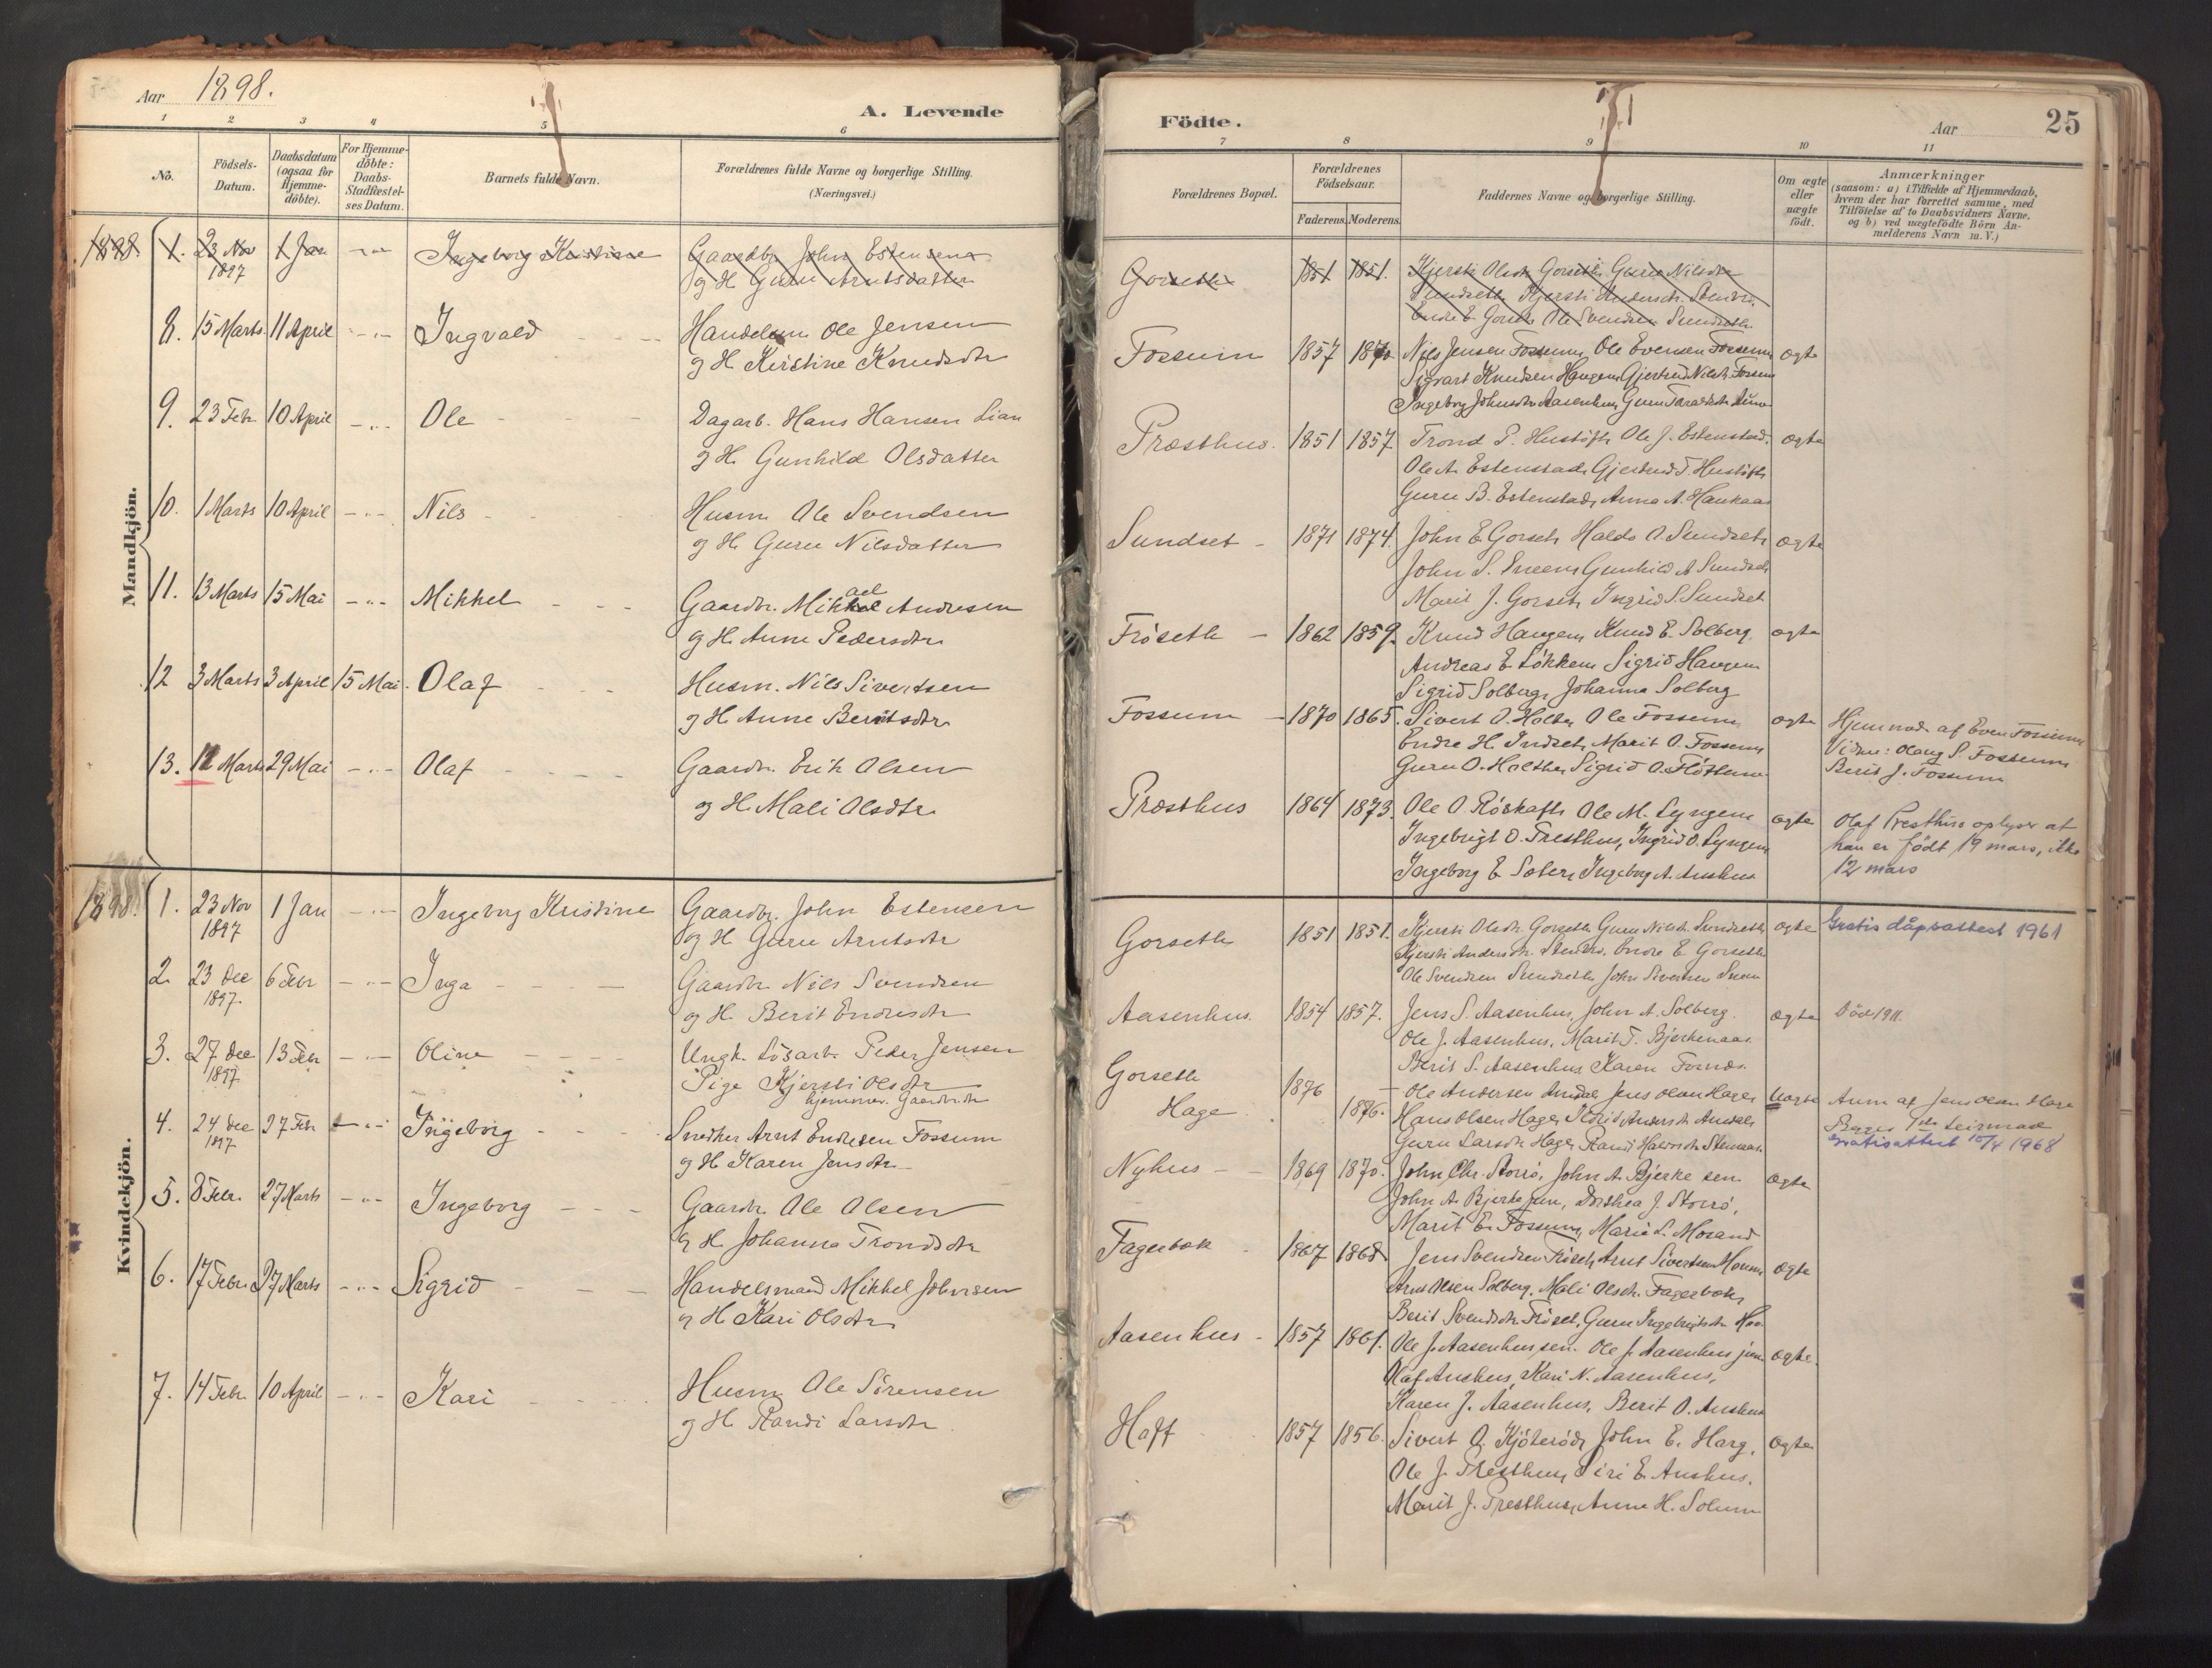 Aar 1898.
A. Levende
1 2 3 4 5 6
No.
Födsels-
Datum.
Daabsdatum
(ogsaa for
Hjemme-
döbte).
For Hjemme-
döbte:
Daabs-
Stadfæstel-
ses Datum.
Barnets fulde Navn.
Forældrenes fulde Navne og borgerlige Stilling.
(Næringsvei.)
Mandkjön.
1898. 1. 23 Nov 1 Jan -"- Ingeborg Kristine Gaardbr John Estensen
1897 og H Guru Arntsdatter
8. 15 Marts 11 April -"- Ingvald Handelsm Ole Jensen
og H. Kirstine Knudsdtr
9. 23 Febr 10 April -"- Ole Dagarb. Hans Hansen Lian
og H. Gunhild Olsdatter
10. 1 Marts 10 April -"- Nils Husm Ole Svendsen
og H. Guru Nilsdatter
11. 13 Marts 15 Mai -"- Mikkel Gaardbr. Mikael Andresen
og H. Anne Pedersdtr
12 3 Marts 3 April 15 Mai. Olaf Husm. Nils Sivertsen
og H Anne Beritsdtr
13. 12 Marts 29 Mai -"- Olaf Gaardbr. Erik Olsen
og H. Mali Olsdtr.
Kvindekjön.
1898. 1. 23 Nov 1 Jan -"- Ingeborg Kristine Gaardbr. John Estensen
1897 og H Guru Arntsdtr
2. 23 Dec 6 Febr -"- Inga Gaardbr Nils Svendsen
1897. og H. Berit Endresdtr
3. 27 Dec 13 Febr -"- Oline Ungk. Lösarb. Peder Jensen
1897. Pige Kjersti Olsdtr
hjemmev. Gaardbrdtr
4. 24 Dec 27 Febr -"- Ingeborg Snedker Arnt Endresen Fossum
1897 og H Karen Jensdtr
5. 8 Febr. 27 Marts -"- Ingeborg Gaardbr. Ole Olsen
og H. Johanna Trondsdtr
6. 17 Febr. 27 Marts -"- Sigrid Handelsmand Mikkel Johnsen
og H Kari Olsdtr
7. 14 Febr. 10 April -"- Kari Husm Ole Sörensen
og H Randi Larsdtr.
Födte.
Aar 25
7 8 9 10 11
Forældrenes Bopæl.
Forældrenes
Födselsaar.
Faderens. Moderens.
Faddernes Navne og borgerlige Stilling.
Om ægte
eller
uægte
födt.
Anmærkninger
(saasom: a) i Tilfælde af Hjemmedaab,
hvem der har forrettet samme, med
Tilföielse af to Daabsvidners Navne.
og b) ved uægtefödte Börn An-
melderens Navn m. V.)
Gorseth 1851 1851. Kjersti Olsdtr Gorseth Guru Nilsdtr
Sundseth Kjersti Andersdtr.
Endre E Gorseth Ole Svendsen Sundseth
Fossum 1857 1870 Nils Jensen Fossum, Ole Evensen Fossum ægte
Sigvart Knudsen Haugen Gjertrud Nilsdtr. Fossum
Ingeborg Johnsdtr Aasenhus, Guru
Præsthus. 1851 1857 Trond P. Hustöft, Ole J. Estenstad. ægte
Ole A. Estenstad, Gjertrud T. Hustöft
Guru B. Estenstad, Anna A. Haukaas
Sundset - 1871 1874. John E Gorseth Haldo O. Sundseth ægte
John S. Gunhild A Sundseth
Marit J. Gorseth Ingrid S. Sundset
Fröseth - 1862 1859. Knud Haugen, Knud E. Solberg. ægte
Andreas E. Lökken Sigrid Haugen
Sigrid Solberg, Johanna Solberg
Fossum - 1870 1865. Sivert O. Holthe Ole Fossum ægte Hjemmed. af Even Fossum
Endre H. Indset, Marit O. Fossum Vidner: Olaug S. Fossum
Guru O. Holthe, Sigrid O. Flöttum Berit J. Fossum
Præsthus 1864 1873. Ole O Röskaft Ole M. Lyngen ægte Olaf Presthus oplyser at
Ingebrigt O. Presthus, Ingrid O. Lyngen han er födt 19 mars, ikke
Ingeborg E Ingeborg A. Aushus 12 mars
Gorseth 1851 1851. Kjersti Olsdtr. Gorseth Guru Nilsdtr. Sundseth ægte Gratis dåpsattest 1961
Kjersti Andersdtr. Endre E Gorseth
Ole Svendsen Sundseth John Sivertsen
Aasenhus. 1854 1857. Jens S. Aasenhus, John A. Solberg. ægte Död 1911.
Ole J. Aasenhus, Marit T. Bjerkenaas
Berit S. Aasenhus Karen
Gorseth 1876 - Ole Andersen Jens Olsen Hage uægte Anm af Jens Olsen Hage
Hage 1876. Hans Olsen Hage,
Guru Larsdtr Hage, Randi Gratisattest 10/4 1968
Nyhus - - 1869 1870. John Chr. Storrö, John A. Bjerke sen ægte
John A. Bjerke jun, Dorthea J. Storrö,
Marit E. Fossum, Marie L. Morand
Fagerbæk 1867 1868. Jens Svendsen Fröset, Arnt Sivertsen ægte
Arnt Olsen Solberg. Mali Olsdtr. Fagerbæk,
Berit Svendsdtr Fröset, Guru Ingebrigtsdtr
Aasenhus - 1857 1861. Ole J. Aasenhus sen. Ole J. Aasenhus jun ægte.
Olaf Aushus, Kari N. Aasenhus,
Karen J. Aasenhus, Berit O. Aushus
Hoff 1857 1856. Sivert O. John E. Harg, ægte
Ole J. Presthus, Siri E. Aushus.
Marit J. Presthus, Anne H. Solum